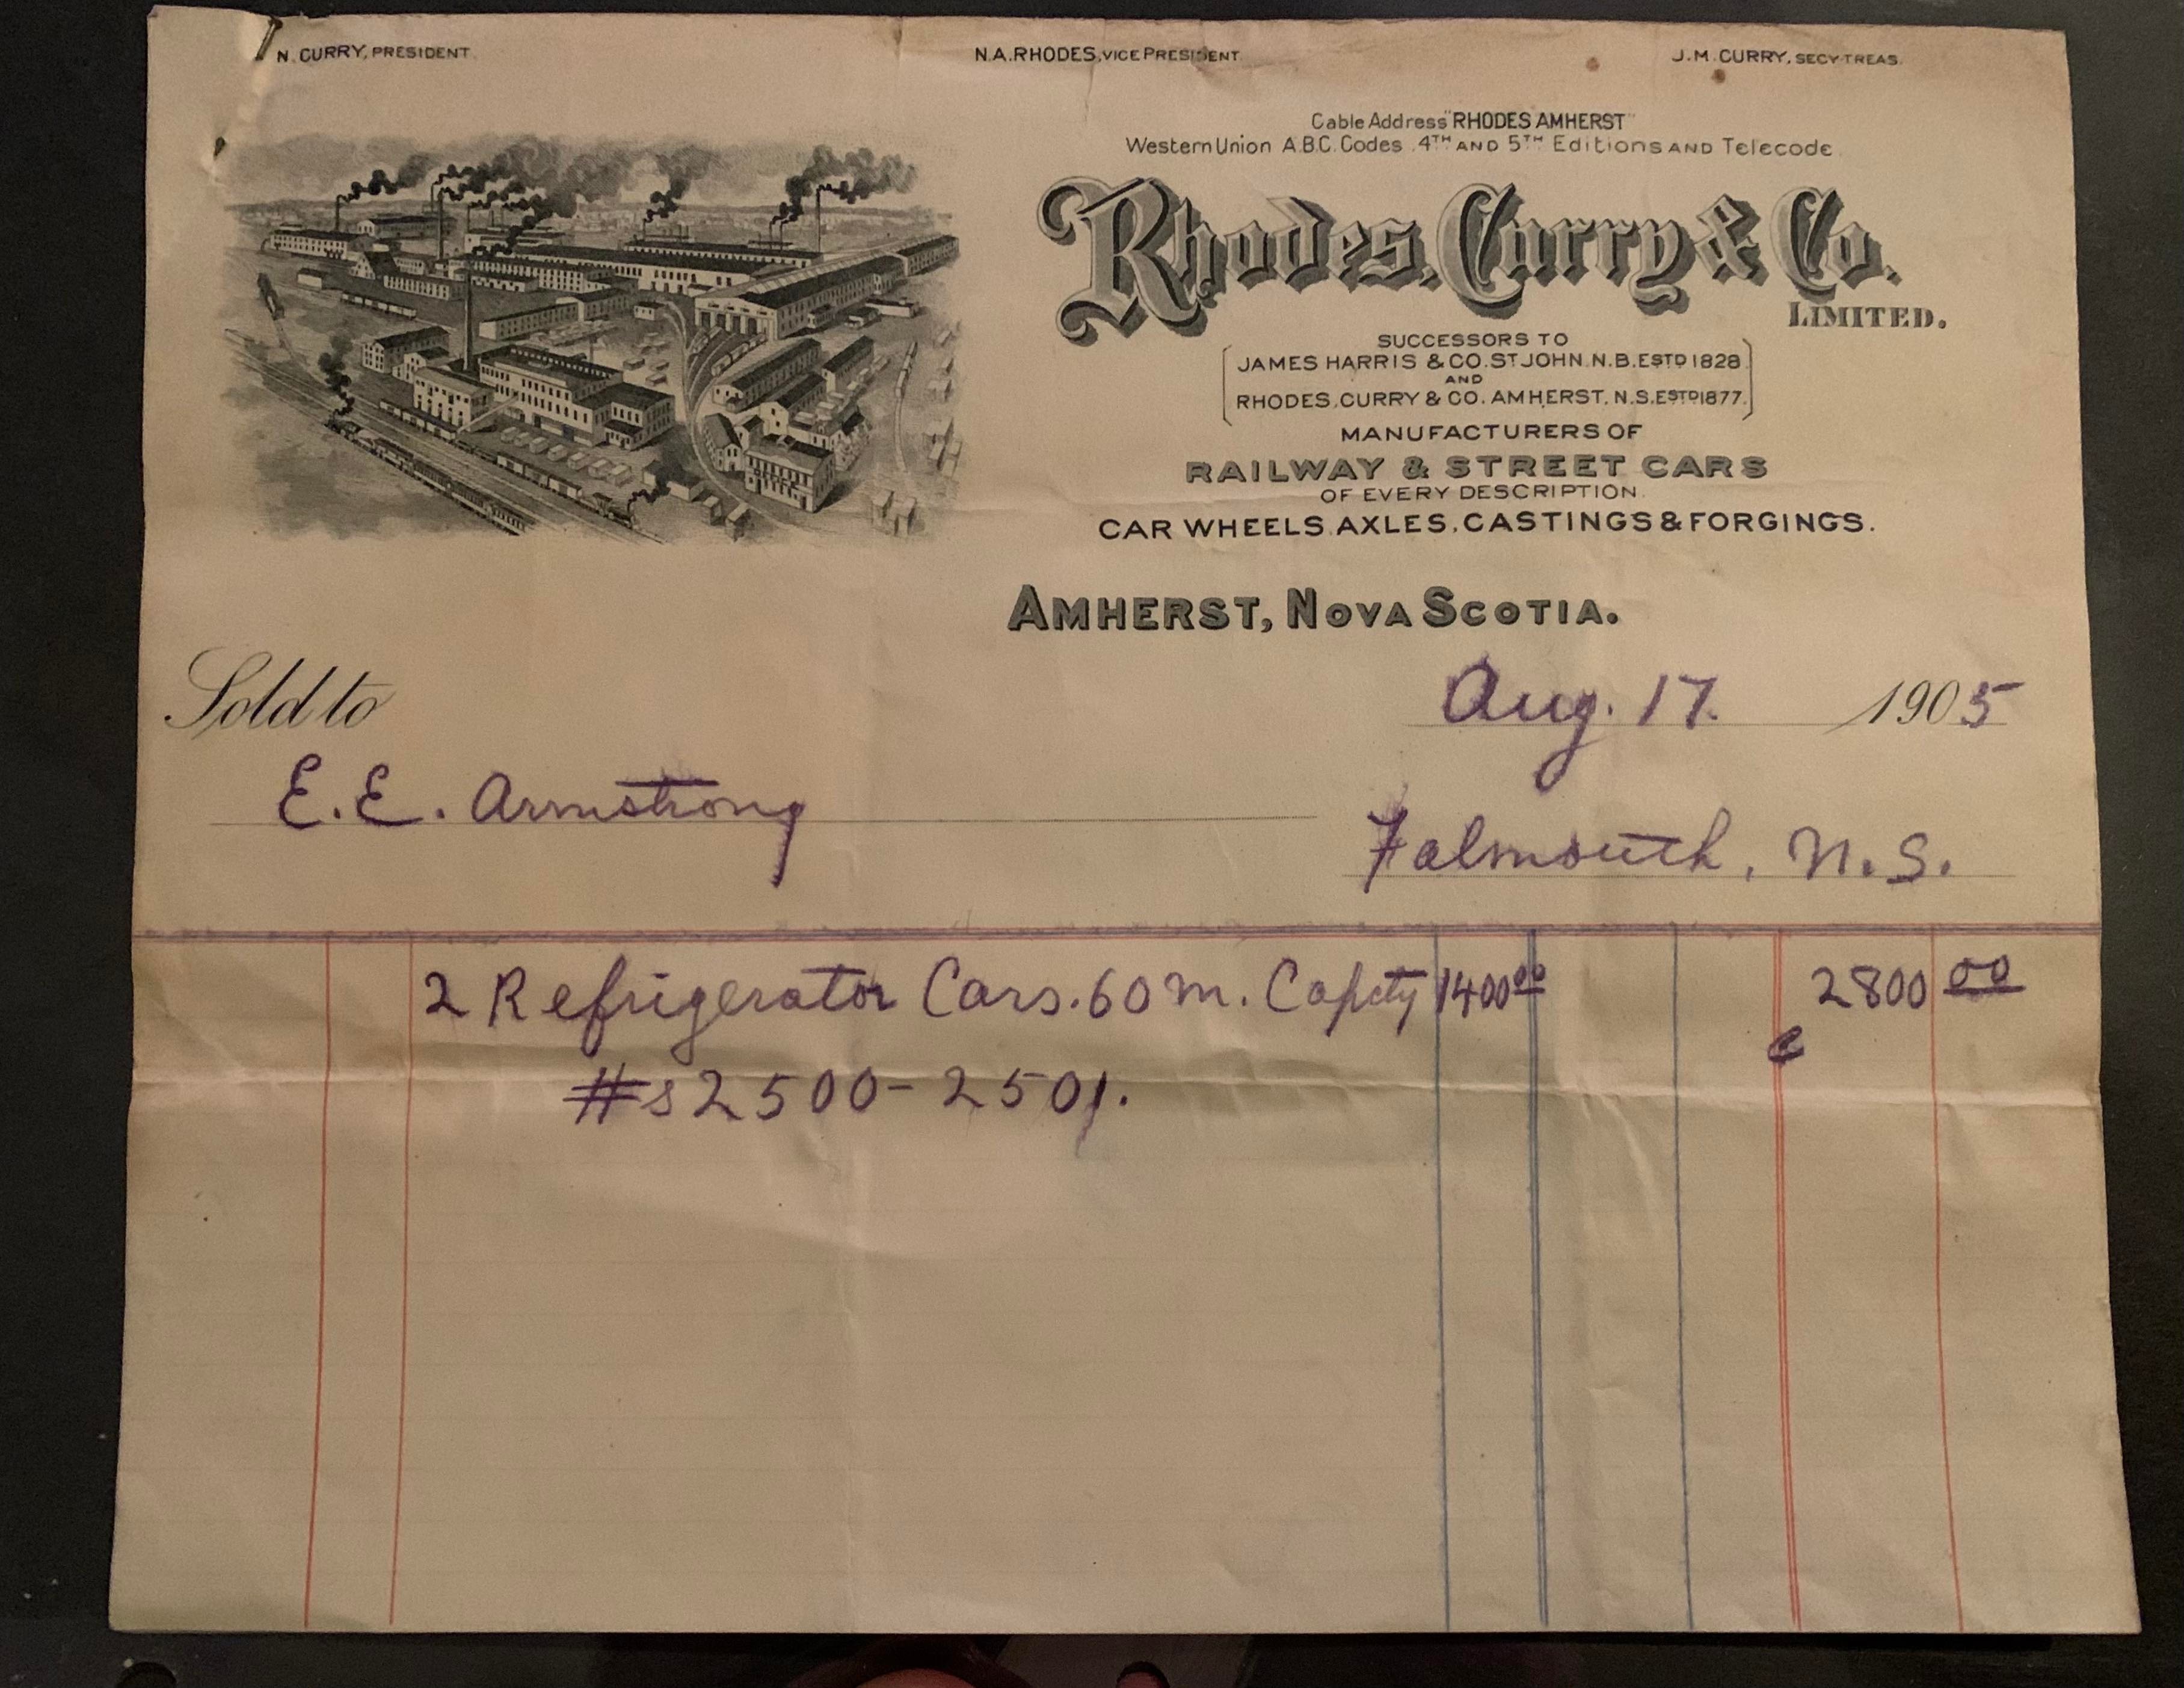 N. CURRY, PRESIDENT.
N.A. RHODES, VICE PRESIDENT.
J.M. CURRY, SECY-TREAS.
Cable Address "RHODES AMHERST"
Western Union A.B.C. Codes 4TH AND 5TH Editions AND Telecode
Rhodes, Curry & Co.
LIMITED.
SUCCESSORS TO
JAMES HARRIS & CO. ST JOHN. N.B. ESTD 1828
AND
RHODES, CURRY & CO. AMHERST, N.S. ESTD 1877.
MANUFACTURERS OF
RAILWAY & STREET CARS
OF EVERY DESCRIPTION.
CAR WHEELS. AXLES, CASTINGS & FORGINGS.
AMHERST, NOVA SCOTIA.
Sold to
Aug. 17. 1905
E. E. Armstrong
Falmouth, N.S.
2 Refrigerator Cars. 60 M. Capcty 1400 00 2800 00
#s 2500 - 2501.